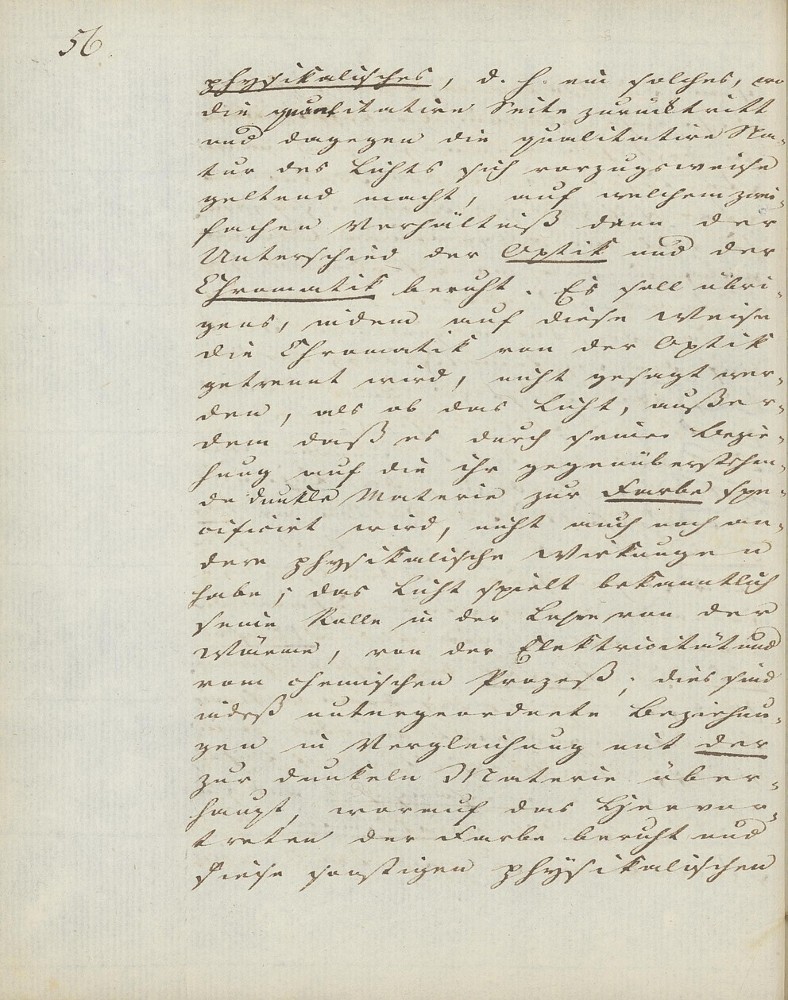 56.
physikalisches, d. h. ein solches, wo
die quantitative Seite zurücktritt
und dagegen die qualitative Na-
tur des Lichts sich vorzugsweise
geltend macht, auf welchem zwei-
fachen Verhältniß denn der
Unterschied der Optik und der
Chromatik beruht. Es soll übri-
gens, indem auf diese Weise
die Chromatik von der Optik
getrennt wird, nicht gesagt wer-
den, als ob das Licht, außer-
dem daß es durch seine Bezie-
hung auf die ihr gegenüberstehen-
de dunkle Materie zur Farbe spe-
cificirt wird, nicht auch noch an-
dere physikalische Wirkungen
habe; das Licht spielt bekanntlich
seine Rolle in der Lehre von der
Wärme, von der Elektricität und
vom chemischen Prozeß; dies sind
indeß untergeordnete Beziehun-
gen in Vergleichung mit der
zur dunkeln Materie über-
haupt, worauf das Hervor-
treten der Farbe beruht und
diese sonstigen physikalischen